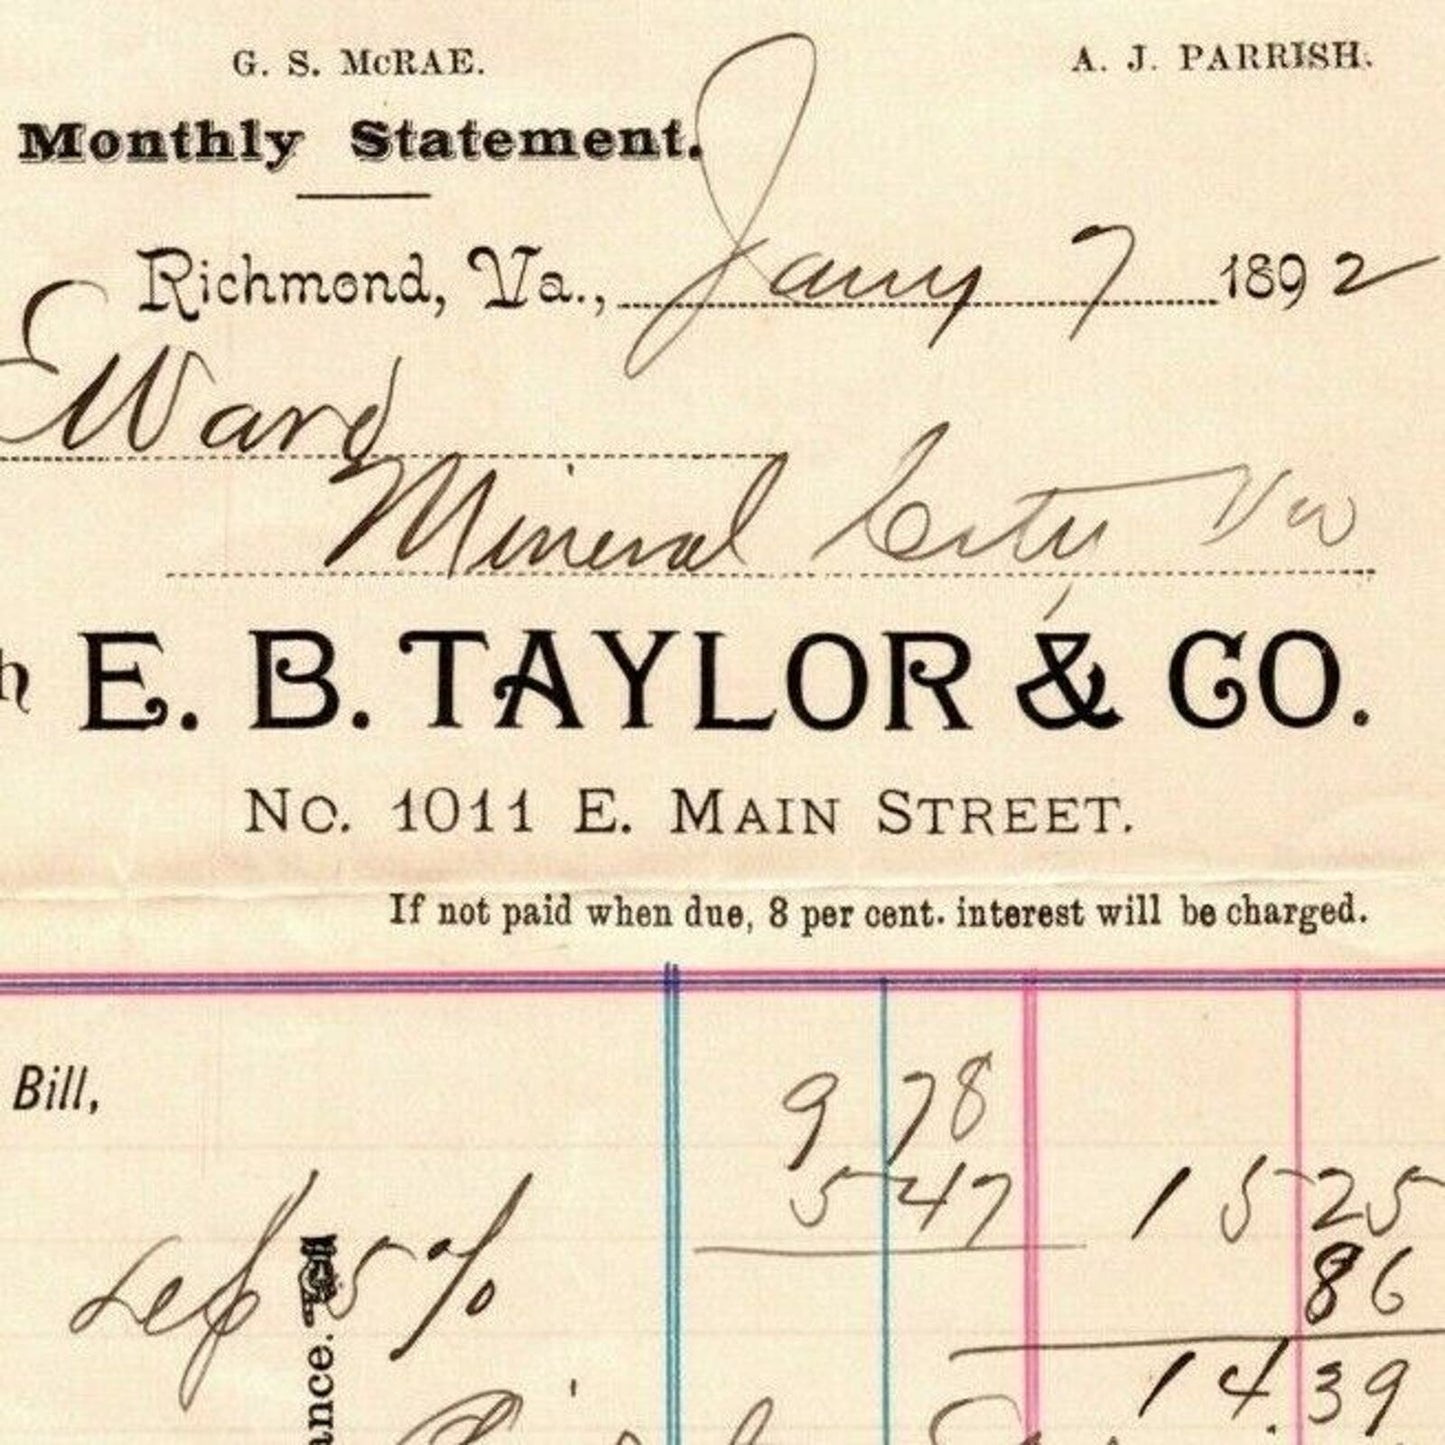 G. S. McRAE. A. J. PARRISH.
Monthly Statement.
Richmond, Va., Jany 7 1892
E Ward
Mineral City Va
E. B. TAYLOR & CO.
No. 1011 E. MAIN STREET.
If not paid when due, 8 per cent. interest will be charged.
Bill, 9 78
5 47 15 25
Less 5% 86
14.39